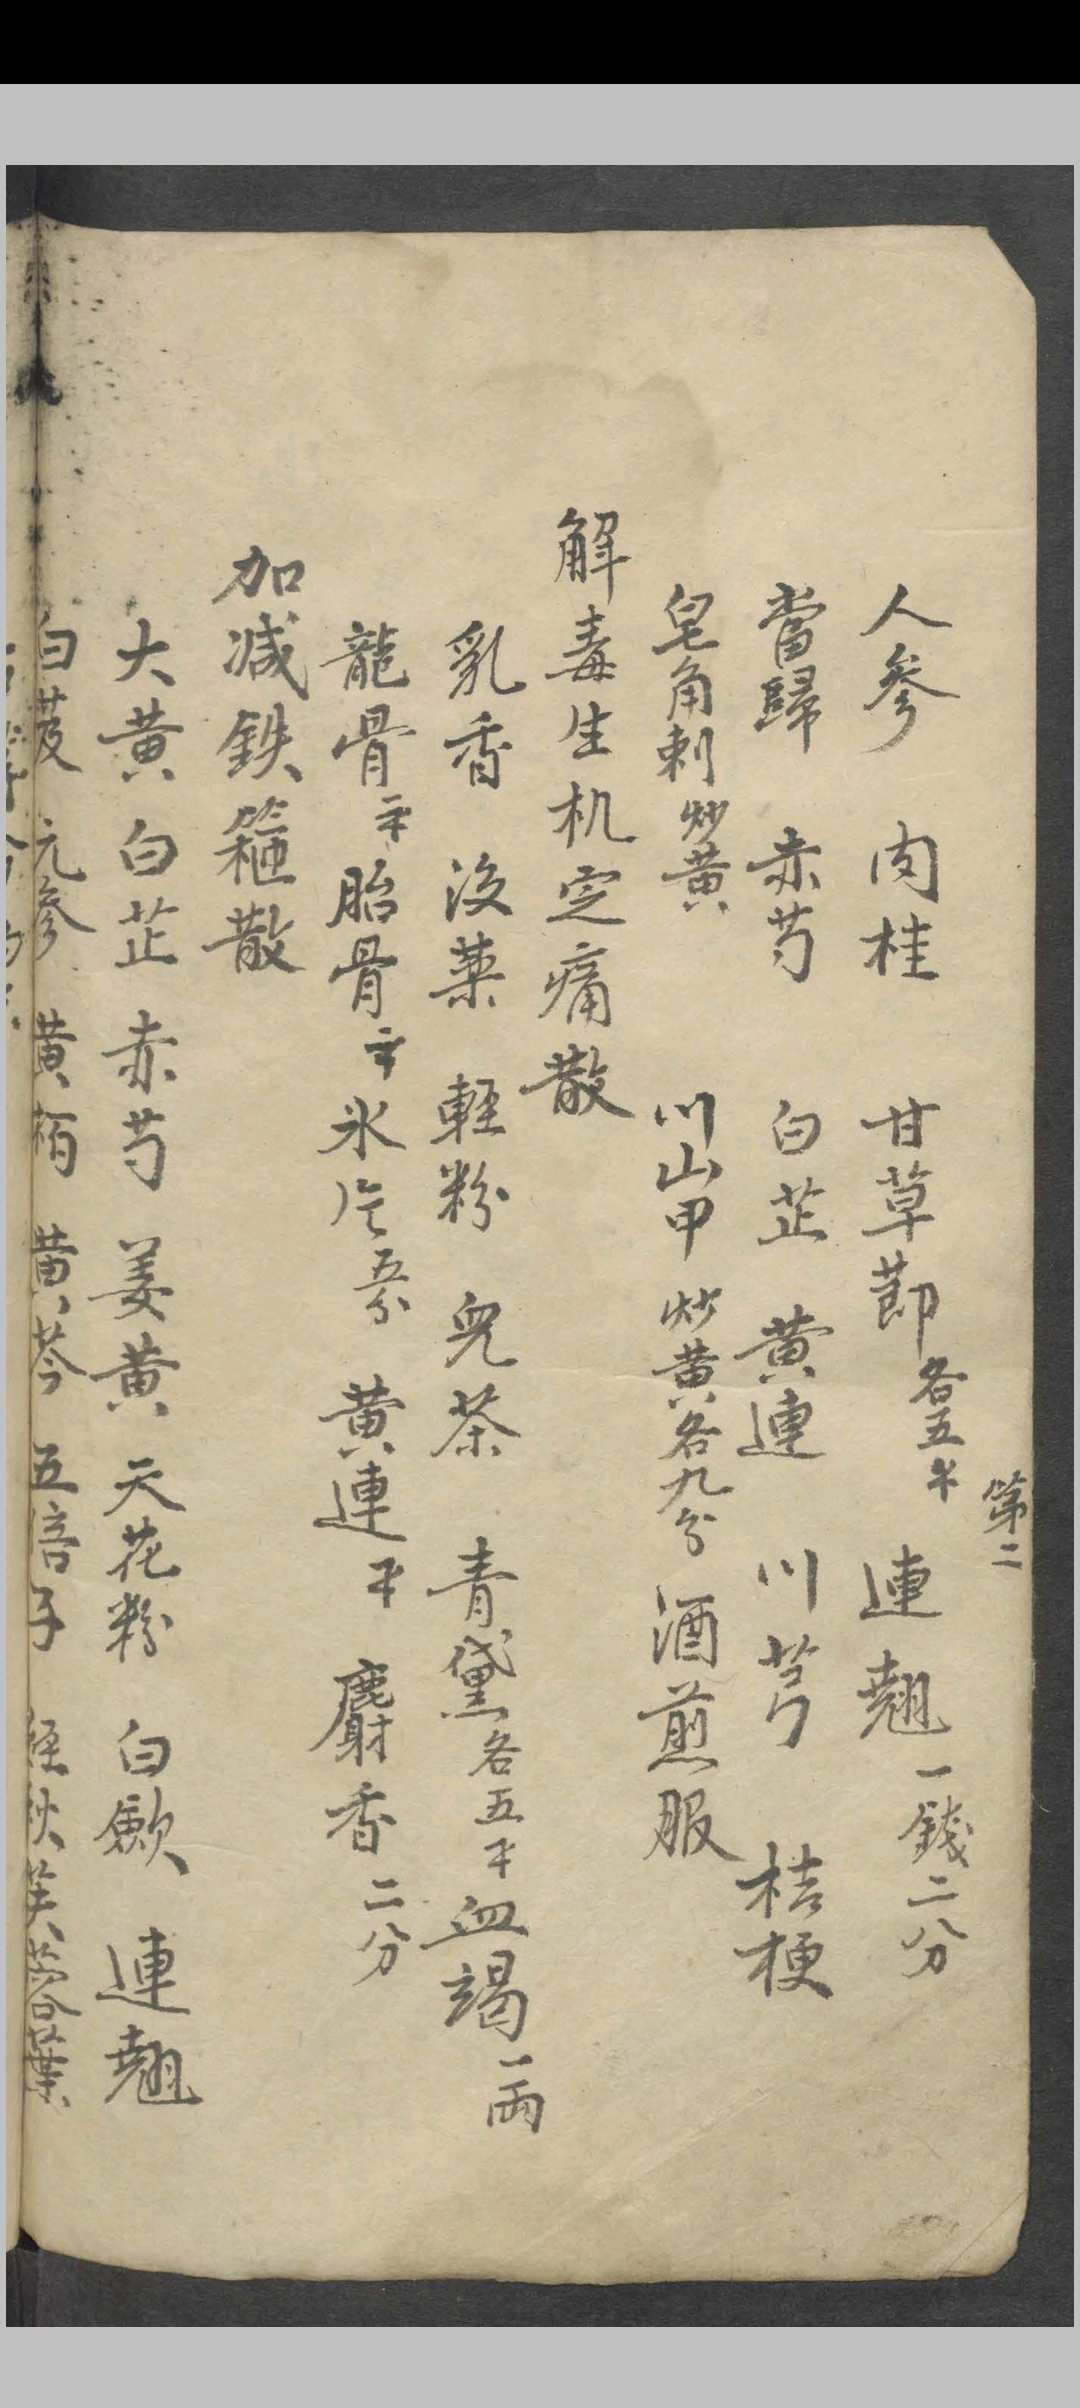 第二
人參 肉桂 甘草節 各五 連翹 一錢二分
當歸 赤芍 白芷 黄連 川芎 桔梗
皂角刺 炒黄 川山甲 炒黄各九分 酒煎服
解毒生机定痛散
乳香 没藥 輕粉 兒茶 青黛 各五 血竭 一两
龍骨 胎骨 氷片 五分 黄連 麝香 二分
加減鉄箍散
大黄 白芷 赤芍 姜黄 天花粉 白歛 連翹
白芨 元參 黄栢 黄芩 五倍子 經秋芙蓉葉